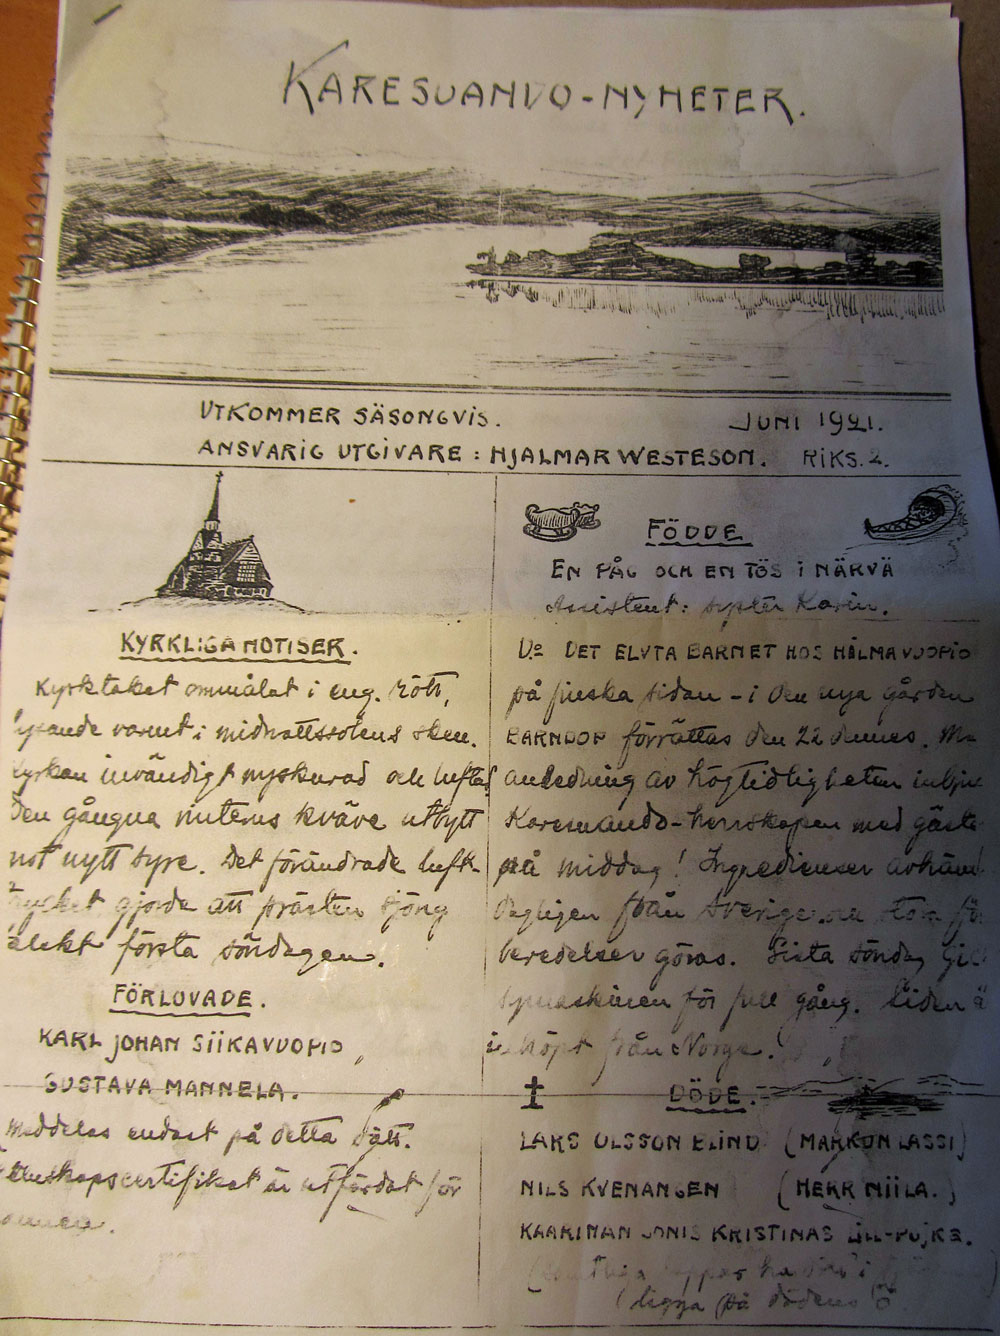 KARESUANDO-NYHETER.
UTKOMMER SÄSONGVIS. JUNI 1921.
ANSVARIG UTGIVARE: HJALMAR WESTESON. RIKS. 2.
KYRKLIGA NOTISER.
Kyrktaket ommålat i eng. rött,
lysande varmt i midnattssolens sken.
Kyrkan invändigt nyskurad och luftad
den gångna vinterns kväve utbytt
mot nytt syre. Det förändrade luft-
trycket gjorde att prästen sjöng
första söndagen.
FÖRLOVADE.
KARL JOHAN SIIKAVUOPIO,
GUSTAVA MANNELA.
Meddelas endast på detta sätt.
är utfärdat för
FÖDDE
EN PÅG OCH EN TÖS I NÄKVÄ
Assistent: syster Karin.
D:o DET ELVTA BARNET HOS HILMA VUOPIO
på finska sidan – i den nya gården
BARNDOP förrättas den 22 dennes. Med
anledning av högtidligheten
Karesuando-herrskapen med gäster
på middag! Ingredienser
från Sverige. stora för-
beredelser göras. Sista söndag
för full gång. Siden är
inköpt från Norge.
DÖDE.
LARS OLSSON BLIND (MARKUN LASSI)
NILS KVENANGEN (HERR NIILA.)
KAARINAN JONIS KRISTINAS LILL-POJKE.
ligga på dödens ö.